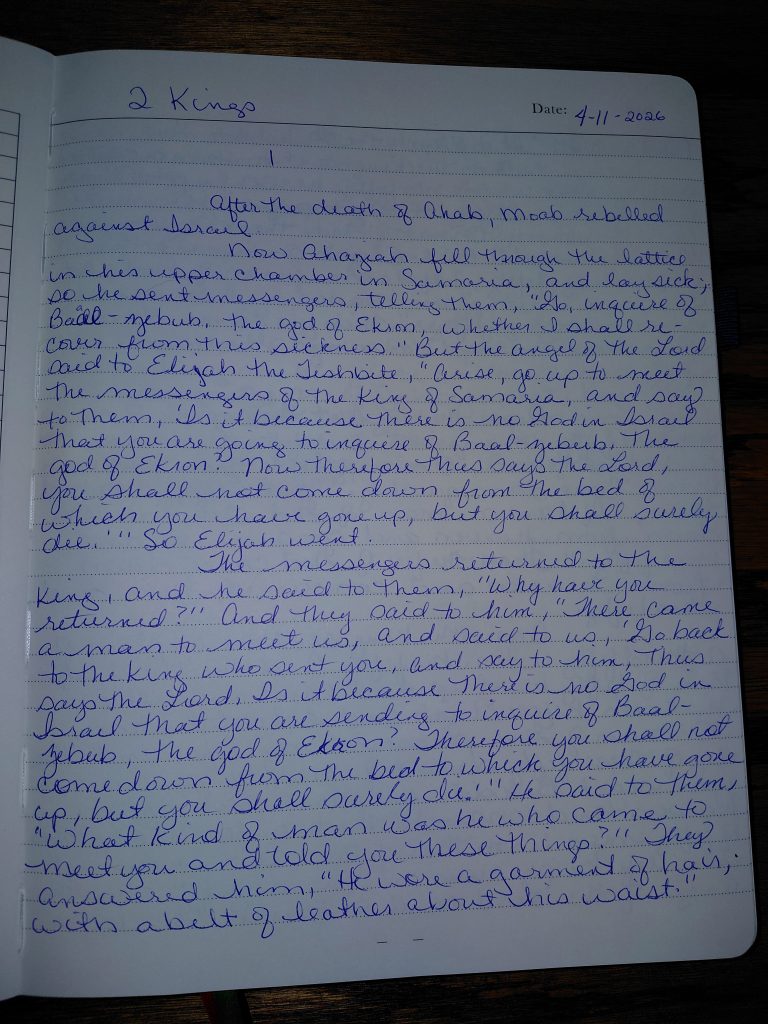 2 Kings
Date: 4-11-2026
1
After the death of Ahab, Moab rebelled
against Israel.
Now Ahaziah fell through the lattice
in his upper chamber in Samaria, and lay sick;
so he sent messengers, telling them, "Go, inquire of
Baal-zebub, the god of Ekron, whether I shall re-
cover from this sickness." But the angel of the Lord
said to Elijah the Tishbite, "Arise, go up to meet
the messengers of the King of Samaria, and say
to them, 'Is it because there is no God in Israel
that you are going to inquire of Baal-zebub, the
god of Ekron? Now therefore thus says the Lord,
you shall not come down from the bed of
which you have gone up, but you shall surely
die.'" So Elijah went.
The messengers returned to the
King, and he said to them, "Why have you
returned?" And they said to him, "There came
a man to meet us, and said to us, 'Go back
to the King who sent you, and say to him, Thus
says the Lord, Is it because there is no God in
Israel that you are sending to inquire of Baal-
zebub, the god of Ekron? Therefore you shall not
come down from the bed to which you have gone
up, but you shall surely die.'" He said to them,
"What kind of man was he who came to
meet you and told you these things?" They
answered him, "He wore a garment of hair,
with a belt of leather about his waist."